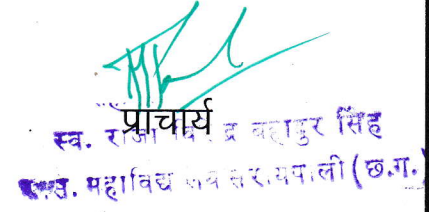 प्राचार्य
स्व. राजा बहादुर सिंह
महाविद्यालय सरायपाली (छ.ग.)